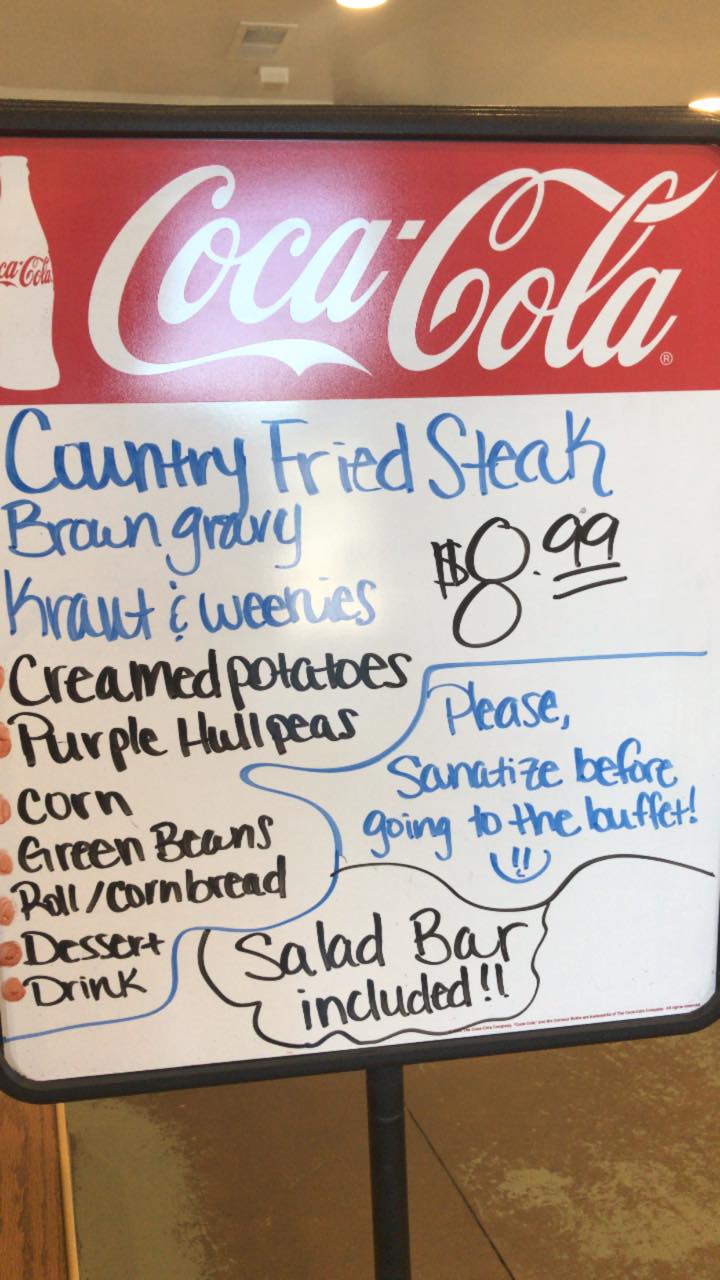 Coca-Cola
®
ca-Cola
Country Fried Steak
Brown gravy
Kraut & weenies
$8.99
Creamed potatoes
Purple Hull peas
Corn
Green Beans
Roll/cornbread
Dessert
Drink
Please,
Sanatize before
going to the buffet!
Salad Bar
included!!